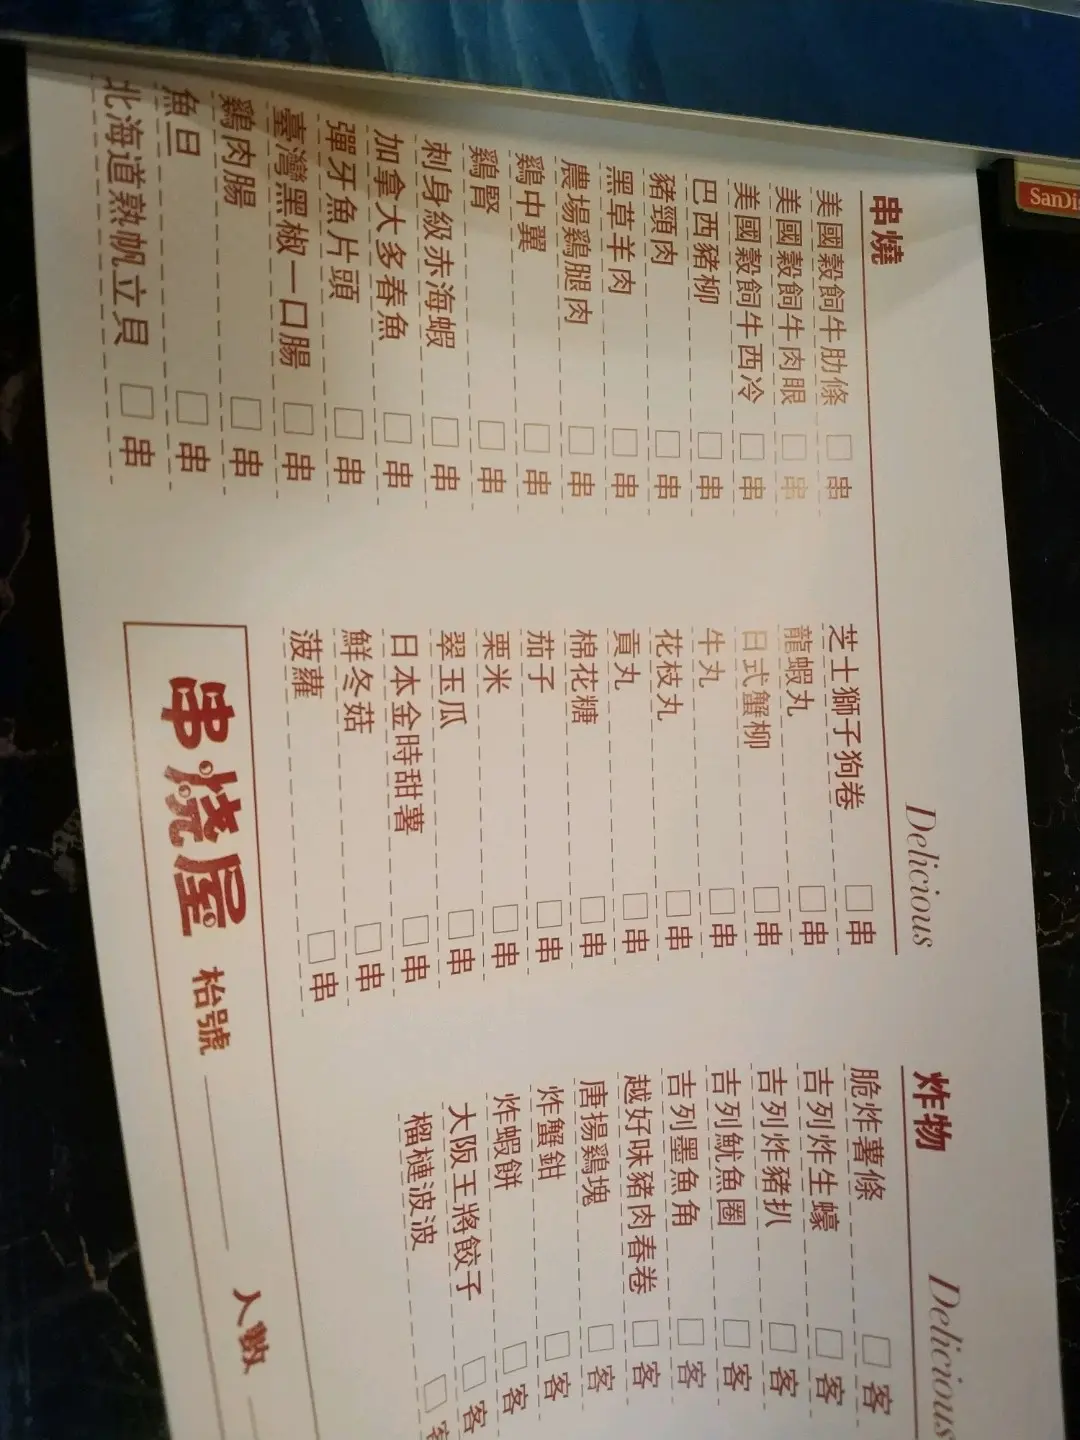 SanDis
串燒
美國穀飼牛肋條 □串
美國穀飼牛肉眼 □串
美國穀飼牛西冷 □串
巴西豬柳 □串
豬頸肉 □串
黑草羊肉 □串
農場鷄腿肉 □串
鷄中翼 □串
鷄腎 □串
刺身級赤海蝦 □串
加拿大多春魚 □串
彈牙魚片頭 □串
臺灣黑椒一口腸 □串
鷄肉腸 □串
魚旦 □串
北海道熟帆立貝 □串
Delicious
芝士獅子狗卷 □串
龍蝦丸 □串
日式蟹柳 □串
牛丸 □串
花枝丸 □串
貢丸 □串
棉花糖 □串
茄子 □串
粟米 □串
翠玉瓜 □串
日本金時甜薯 □串
鮮冬菇 □串
菠蘿 □串
炸物 Delicious
脆炸薯條 □客
吉列炸生蠔 □客
吉列炸豬扒 □客
吉列魷魚圈 □客
吉列墨魚角 □客
越好味豬肉春卷 □客
唐揚鷄塊 □客
炸蟹鉗 □客
炸蝦餅 □客
大阪王將餃子 □客
榴槤波波 □客
串烧屋 枱號 人數